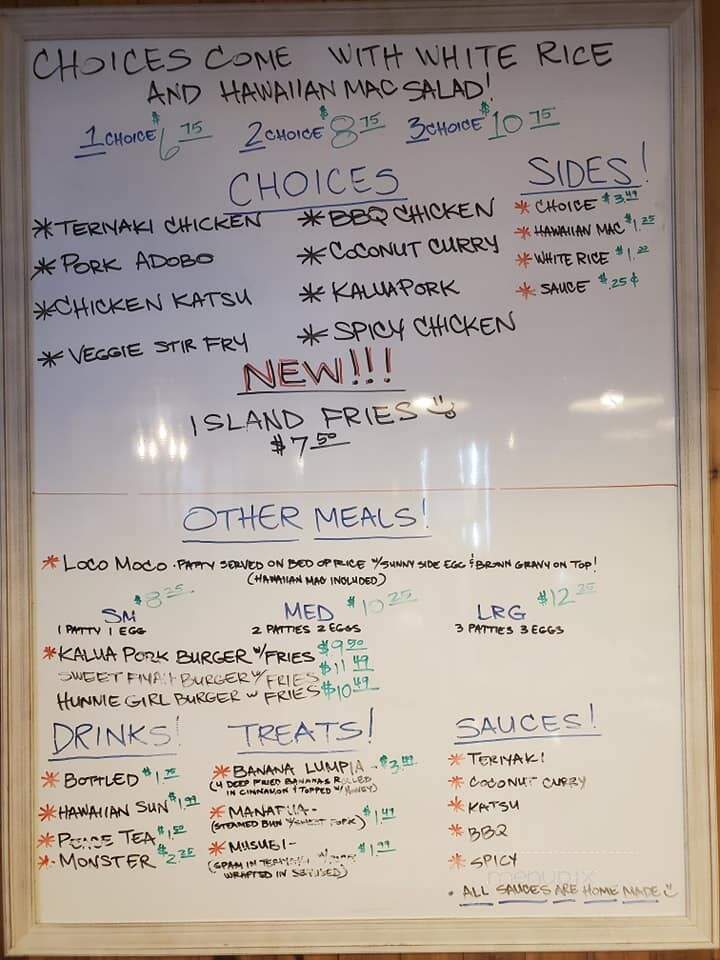 CHOICES COME WITH WHITE RICE
AND HAWAIIAN MAC SALAD!
1 CHOICE $6 75 2 CHOICE $8 75 3 CHOICE $10 75
CHOICES
* TERIYAKI CHICKEN
* PORK ADOBO
* CHICKEN KATSU
* VEGGIE STIR FRY
* BBQ CHICKEN
* COCONUT CURRY
* KALUA PORK
* SPICY CHICKEN
SIDES!
* CHOICE $3.49
* HAWAIIAN MAC $1.25
* WHITE RICE
* SAUCE $.25¢
NEW!!!
ISLAND FRIES
$7.50
OTHER MEALS!
* LOCO MOCO - PATTY SERVED ON BED OF RICE W/ SUNNY SIDE EGG & BROWN GRAVY ON TOP!
(HAWAIIAN MAC INCLUDED)
SM $8 25 MED $10 25 LRG $12 25
1 PATTY 1 EGG 2 PATTIES 2 EGGS 3 PATTIES 3 EGGS
* KALUA PORK BURGER W/ FRIES $9 50
SWEET FIYAH BURGER W/ FRIES $11 49
HUNNIE GIRL BURGER W FRIES $10 49
DRINKS!
* BOTTLED
* HAWAIIAN SUN $1.99
* PEACE TEA $1.50
* MONSTER $2.25
TREATS!
* BANANA LUMPIA -
(4 DEEP FRIED BANANAS ROLLED
IN CINNAMON & TOPPED W/ HONEY)
* MANAPUA - $1.49
(STEAMED BUN W/ SWEET PORK)
* MUSUBI - $1.99
(SPAM IN TERIYAKI W/
WRAPPED IN
SAUCES!
* TERIYAKI
* COCONUT CURRY
* KATSU
* BBQ
* SPICY
menupix
• ALL SAUCES ARE HOME MADE